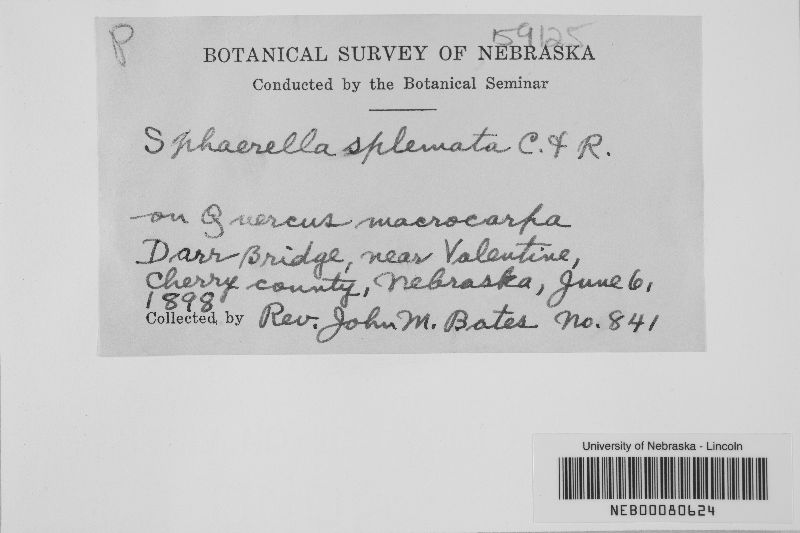 P 59125
BOTANICAL SURVEY OF NEBRASKA
Conducted by the Botanical Seminar
Sphaerella splemata C. & R.
on Quercus macrocarpa
Darr Bridge, near Valentine,
Cherry county, Nebraska, June 6,
1898
Collected by Rev. John M. Bates No. 841
University of Nebraska - Lincoln
NEB00080624